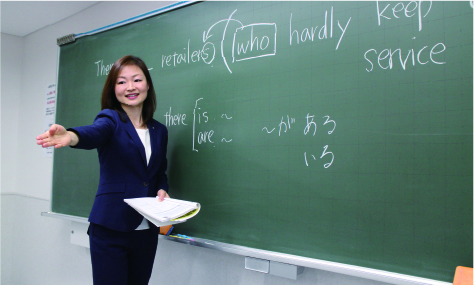 There - retailers (who hardly keep
service
there is ～
are ～
～が ある
いる